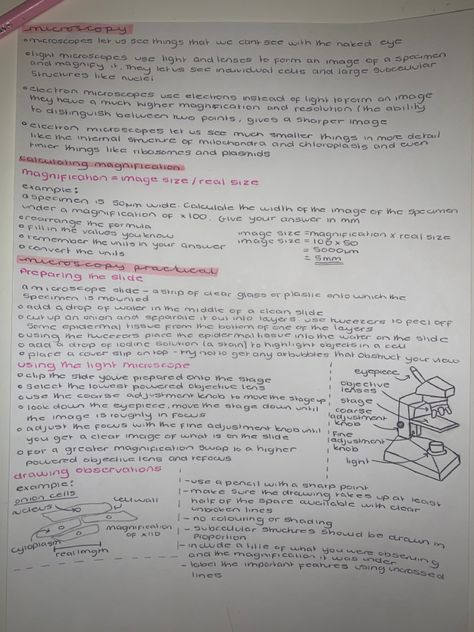 microscopy
• microscopes let us see things that we cant see with the naked eye
• light microscopes use light and lenses to form an image of a specimen
and magnify it. They let us see individual cells and large subcellular
structures like nuclei
• electron microscopes use electrons instead of light to form an image
they have a much higher magnification and resolution (the ability
to distinguish between two points, gives a sharper image
• electron microscopes let us see much smaller things in more detail
like the internal structure of mitochondria and chloroplasts and even
tinier things like ribosomes and plasmids
calculating magnification
magnification = image size / real size
example:
a specimen is 50μm wide. Calculate the width of the image of the specimen
under a magnification of x100. Give your answer in mm
• rearrange the formula
• fill in the values you know
• remember the units in your answer
• convert the units
image size = magnification x real size
image size = 100 x 50
= 5000um
= 5mm
microscopy practical
Preparing the slide
a microscope slide - a strip of clear glass or plastic onto which the
specimen is mounted
• add a drop of water in the middle of a clean slide
• cut up an onion and separate it out into layers. use tweezers to peel off
some epidermal tissue from the bottom of one of the layers
• using the tweezers place the epidermal tissue into the water on the slide
• add a drop of iodine solution (a stain) to highlight objects in a cell
• place a cover slip on top - try not to get any air bubbles that obstruct your view
using the light microscope
• clip the slide you've prepared onto the stage
• select the lowest powered objective lens
• use the coarse adjustment knob to move the stage up
• look down the eyepiece, move the stage down until
the image is roughly in focus
• adjust the focus with the fine adjustment knob until
you get a clear image of what is on the slide
• for a greater magnification swap to a higher
powered objective lens and refocus
eyepiece
objective
lenses
stage
coarse
adjustment
knob
fine
adjustment
knob
light
drawing observations
example:
onion cells
nucleus
cell wall
cytoplasm
magnification
of x110
real length
- use a pencil with a sharp point
- make sure the drawing takes up at least
half of the space available with clear
unbroken lines
- no colouring or shading
- subcellular structures should be drawn in
proportion
- include a title of what you were observing
and the magnification it was under
- label the important features using uncrossed
lines